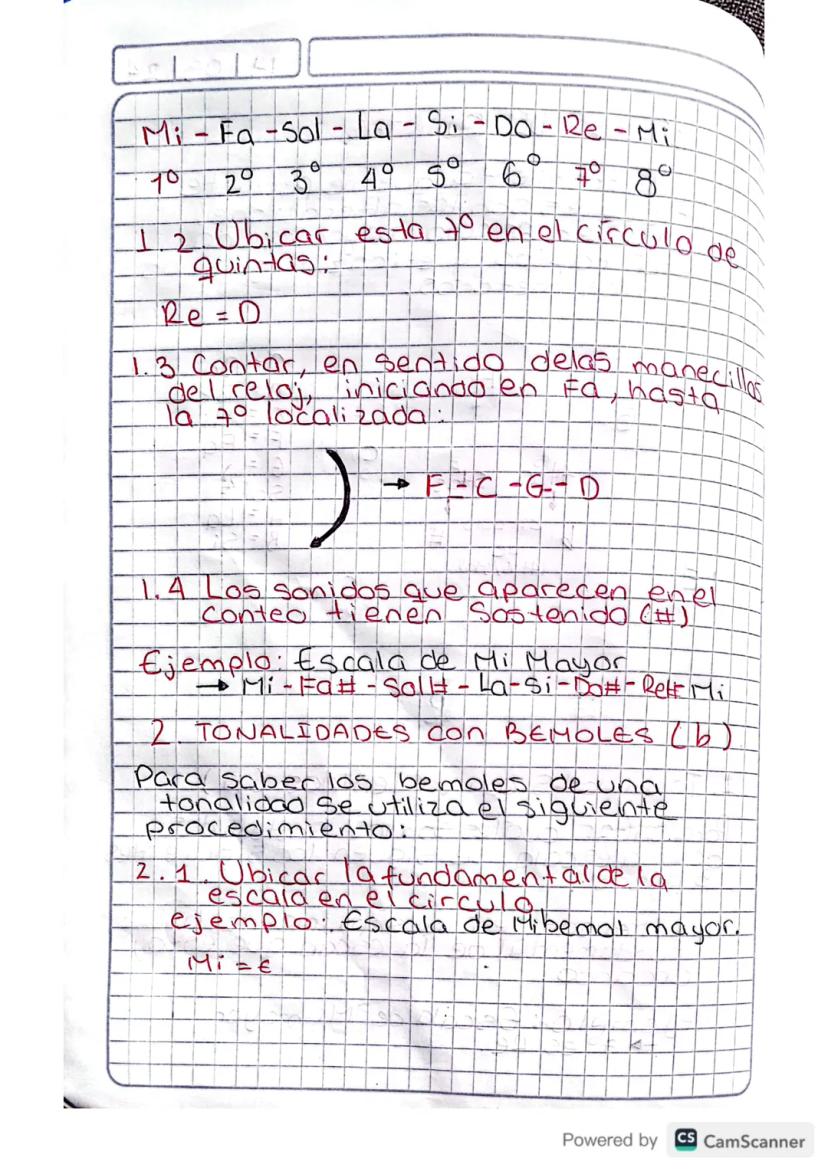 Mi - Fa - Sol - La - Si - Do - Re - Mi
1º 2º 3º 4º 5º 6º 7º 8º
1.2. Ubicar esta 7º en el círculo de
quintas:
Re = D
1.3 Contar, en sentido delas manecillas
del reloj, iniciando en Fa, hasta
la 7º localizada:
→ F - C - G - D
1.4 Los sonidos que aparecen en el
conteo tienen Sostenido (#)
Ejemplo: Escala de Mi Mayor
→ Mi - Fa# - Sol# - La - Si - Do# - Re# Mi
2. TONALIDADES con BEMOLES (b)
Para saber los bemoles de una
tonalidad se utiliza el siguiente
procedimiento:
2.1. Ubicar la fundamental de la
escala en el circulo
ejemplo: Escala de Mibemol mayor.
Mi = E
Powered by CS CamScanner